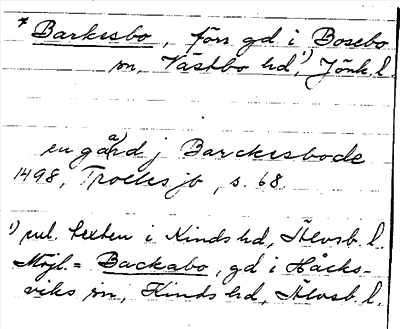 * Barkesbo, förr gd i Bosebo
sn, Västbo hd,¹) Jönk. l.
en gård j Barckesbode
1498, Trolles jb, s. 68
¹) enl. texten i Kinds hd, Älvsb. l.
Möjl. = Backabo, gd i Håcks-
viks sn, Kinds hd, Älvsb. l.